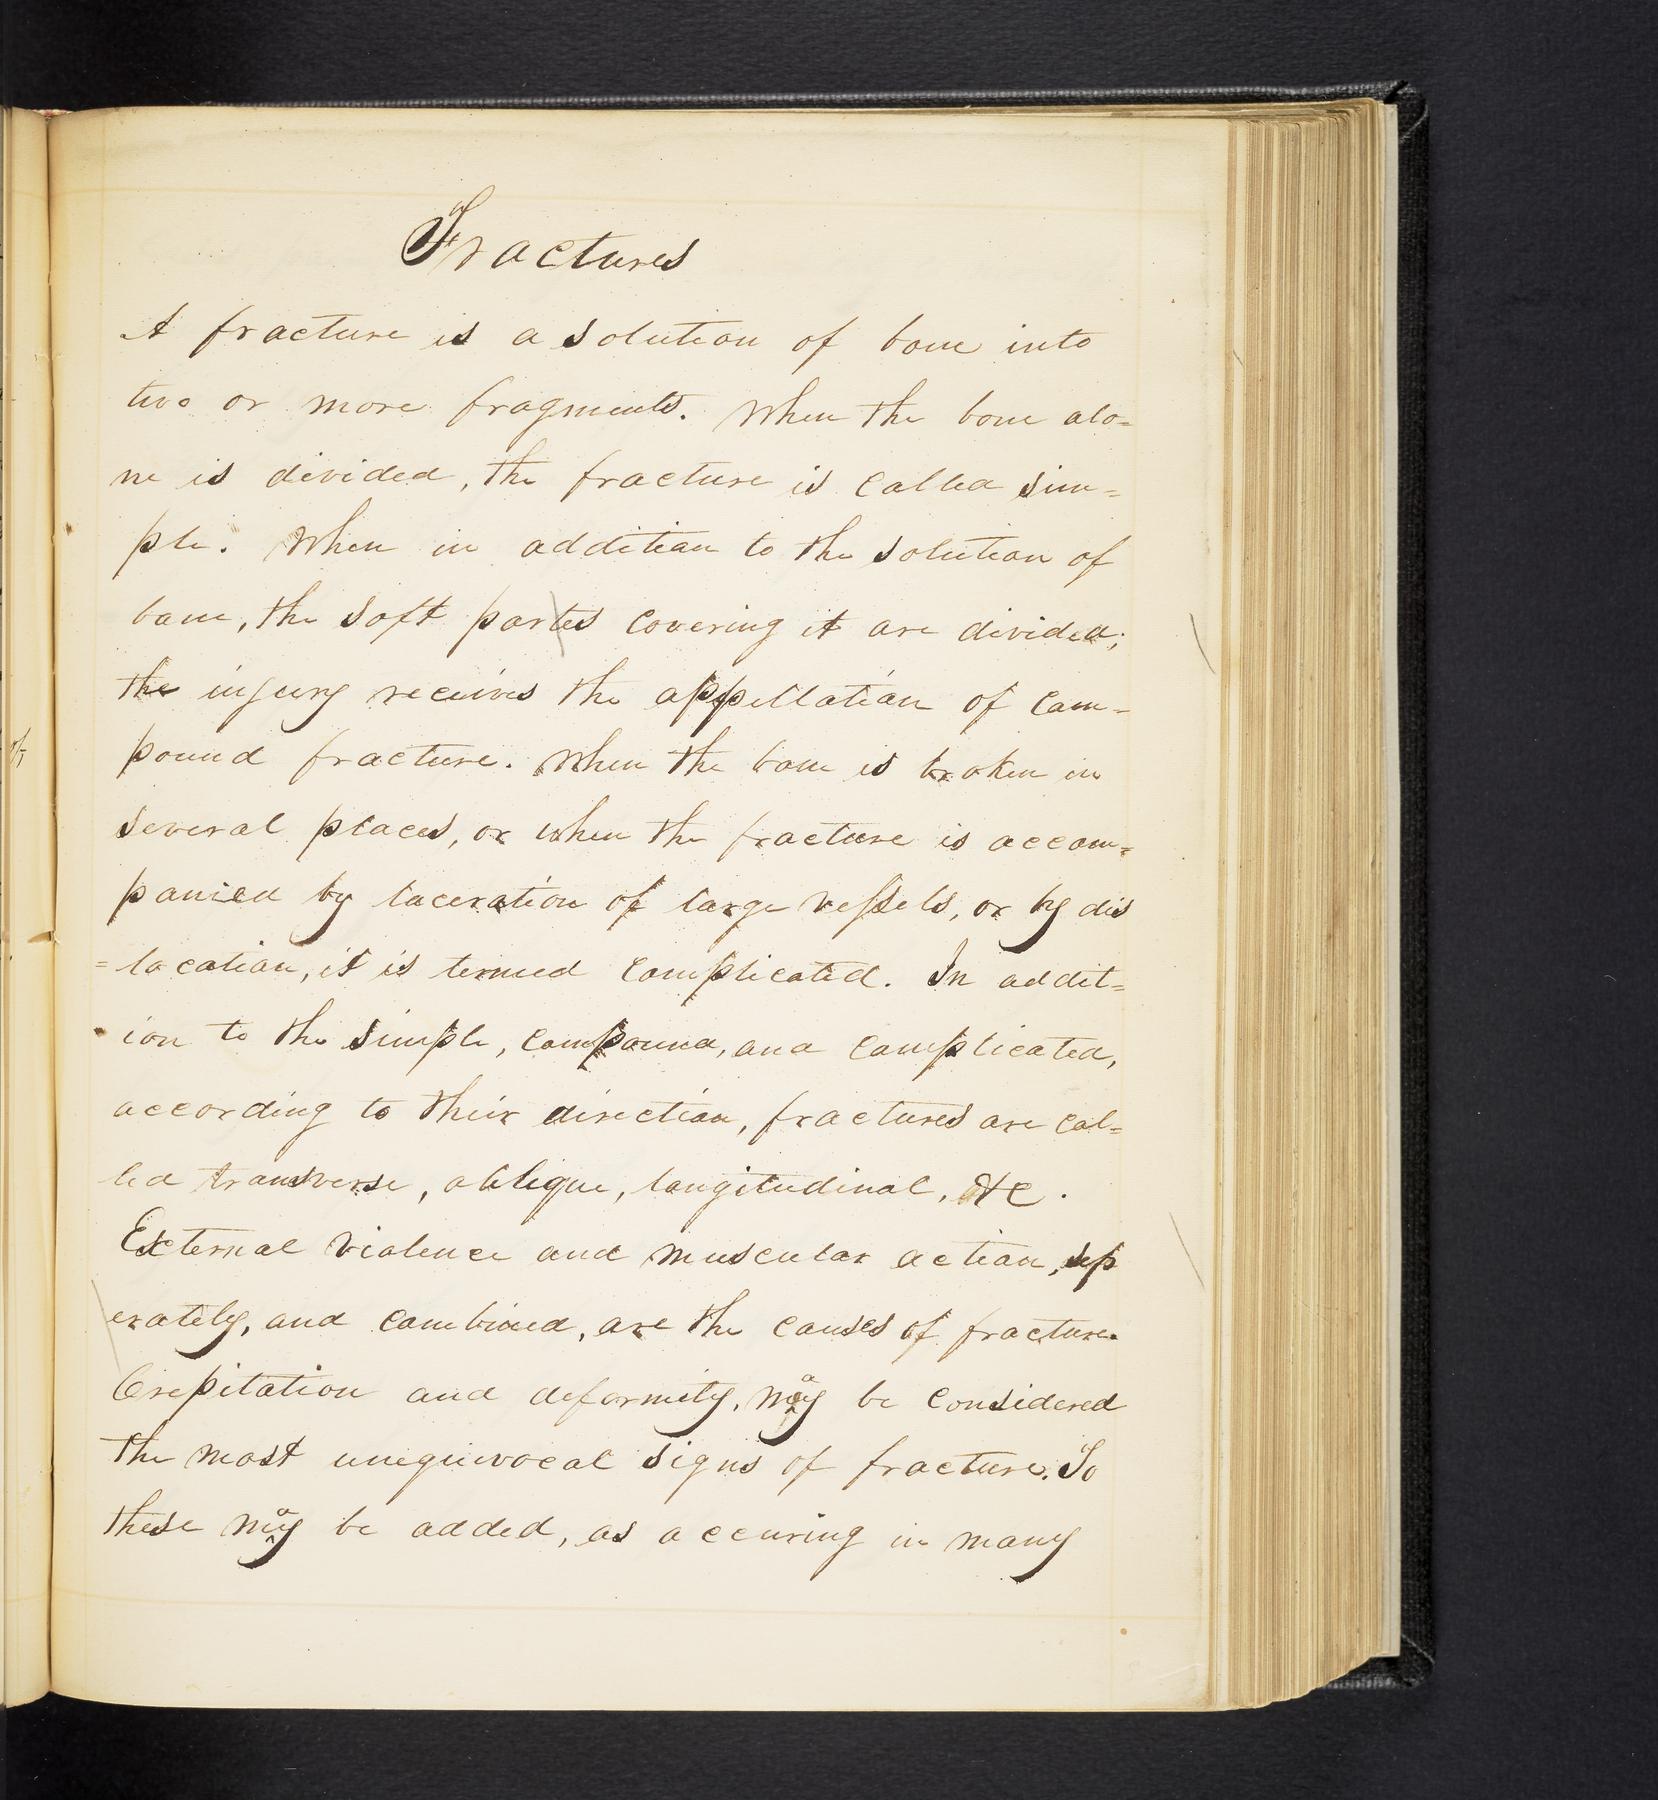 Fractures
A fracture is a solution of bone into
two or more fragments. When the bone alo=
ne is divided, the fracture is called sim=
ple. When in addition to the solution of
bone, the soft partes covering it are divided;
the injury receives the appellation of com=
pound fracture. When the bone is broken in
several places, or when the fracture is accom=
panied by laceration of large vessels, or by dis
=location, it is termed complicated. In addit=
ion to the simple, compound, and complicated,
according to their direction, fractures are cal=
led transverse, oblique, longitudinal, &c.
External violence and muscular action, sep
erately, and combined, are the causes of fracture.
Crepitation and deformity, may be considered
the most unequivocal signs of fracture. To
these may be added, as accuring in many